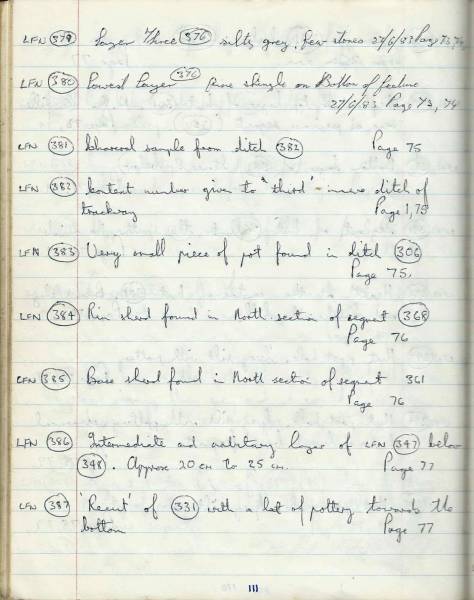 LFN 379 Layer Three 376 silts, grey, few stones 27/6/83 Page 73, 74
LFN 380 Lowest Layer 376 shingle on Bottom of feature
27/6/83 Page 73, 74
LFN 381 Charcoal sample from ditch 382 Page 75
LFN 382 Context number given to "third" inner ditch of
trackway Page 1, 75
LFN 383 Very small piece of pot found in ditch 306
Page 75.
LFN 384 Rim sherd found in North section of segment 368
Page 76
LFN 385 Base sherd found in North section of segment 361
Page 76
LFN 386 Intermediate and arbitrary layer of LFN 347 below
348. Approx 20 cm to 25 cm. Page 77
LFN 387 'Recut' of 331 with a lot of pottery towards the
bottom Page 77
111